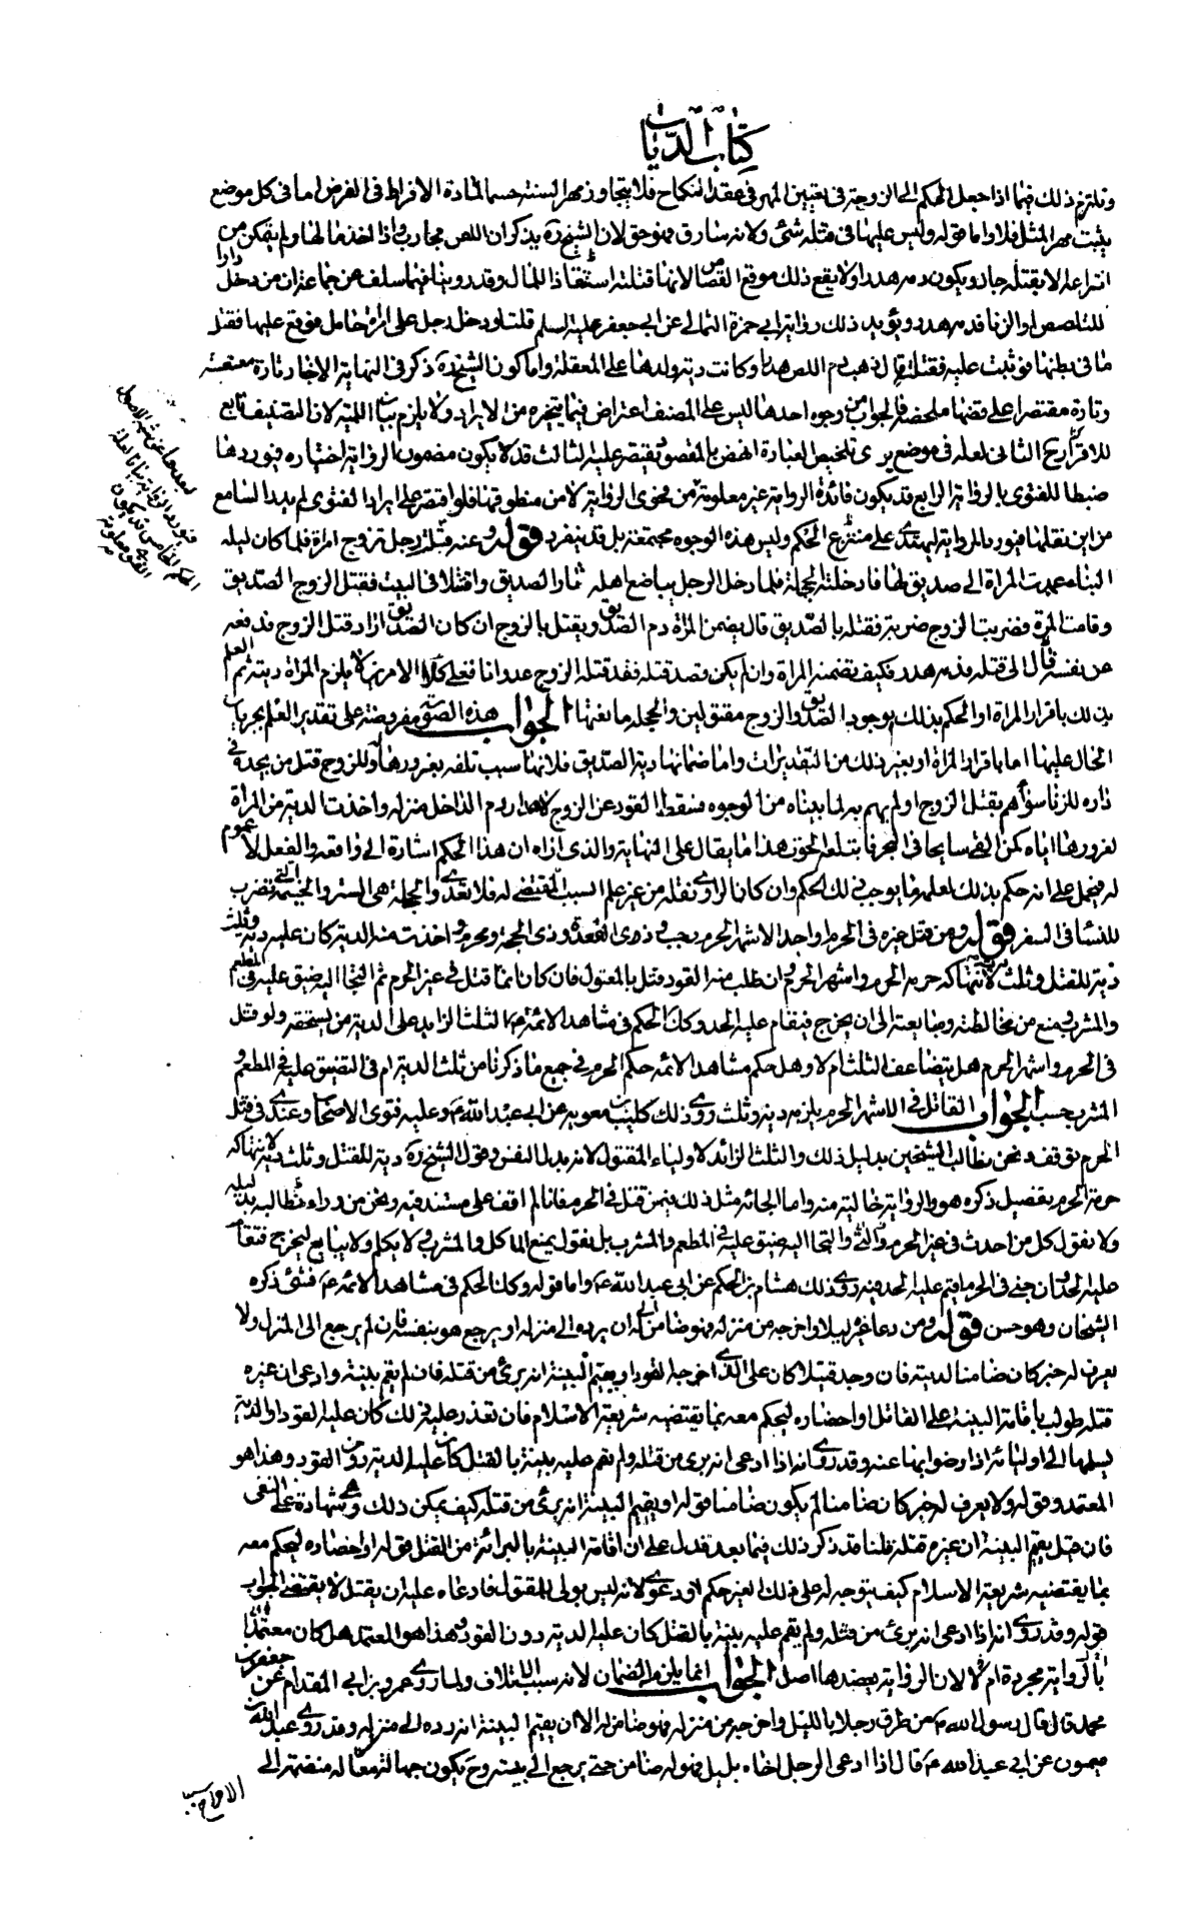 كتاب الديات
ونلتزم ذلك فيما اذا جعل الحكم الى الزوجة في تعيين المهر في عقد النكاح فلا يتجاوز مهر السنة حسما لمادة الافراط في الفرض اما في كل موضع
يثبت مهر المثل فلا واما قوله وليس عليها في قتله شئ ولانه سارق فهو حق لان الشيخ ره يذكر ان اللص محارب واذا اخذ مالها ولم يتمكن من
انتزاعه الا بقتله جاز ويكون دمه هدرا ولا يقع ذلك موقع القصاص لانها قتلته استنقاذا للمال وقد روينا فيما سلف عن جماعة ان من دخل دارا
للتلصص او الزنا فدمه هدر ويؤيد ذلك رواية ابي حمزة الثمالي عن ابي جعفر عليه السلم قلت لو دخل رجل على امراة حامل فوقع عليها فقتل
ما في بطنها فوثبت عليه فقتلته قال ذهب دم اللص هدرا وكانت دية ولدها على المعقلة واما كون الشيخ ره ذكر في النهاية الاخبار تارة
وتارة مقتصرا على قضها ملخصة فالجواب من وجوه احدها ليس على المصنف اعتراض فيما يتخيره من الايراد ولا يلزم بيان اللمية لان التصنيف تابع
للاقتراح الثاني لعله في موضع يرى تلخيص العبادة انهض بالمقصود فيقتصر عليه الثالث قد لا يكون مضمون الرواية اختياره فيوردها
ضبطا للفتوى بالرواية الرابع قد يكون فائدة الرواية غير معلومة من فحوى الرواية لا من منطوقها فلو اقتصر على ايراد الفتوى لم يدر السامع
من اين نقلها فيورد الرواية ليستدل على منتزع الحكم وليس هذه الوجوه مجتمعة بل قد ينفرد قوله وعنه في رجل تزوج امراة فلما كان ليلة
البناء عمدت المراة الى صديق لها فادخلته الحجلة فلما دخل الرجل يباضع اهله ثار الصديق واقتتلا في البيت فقتل الزوج الصديق
وقامت المراة فضربت الزوج ضربة فقتلته بالصديق قال يضمن المراة دم الصديق ويقتل بالزوج ان كان الصديق اراد قتل الزوج فدفعه
عن نفسه فال الى قتله فدمه هدر فكيف تضمنه المراة وان لم يكن قصد قتله فقد قتله الزوج عدوانا فعلى كلا الامرين لا يلزم المراة ديته ثم العلم
بذلك باقرار المراة او الحكم بذلك بوجود الصديق والزوج مقتولين والحجلة ما معناها الجواب هذه الصورة مفروضة على تقدير العلم بجريان
الحال عليها اما باقرار المراة او بغير ذلك من التقديرات واما ضمانها دية الصديق فلانها سبب تلفه بغرورها وللزوج قتل من يجده في
داره للزنا سواء هم بقتل الزوج او لم يهم به لما بيناه من الوجوه فسقط القود عن الزوج لاهدار دم الداخل منزله واخذت الدية من المراة
لغرورها اياه كمن القى سابحا في البحر فابتلعه الحوت هذا ما يقال على النهاية والذي اراه ان هذا الحكم اشارة الى واقعه والفعل لا عموم
له فيحمل على انه حكم بذلك لعلمه بما يوجب ذلك الحكم وان كان الراوي نقله من غير علم السبب المقتضي له فلا تعدي والحجلة هي الستر والخيمة التي تضرب
للنساء في السفر قوله ومن قتل غيره في الحرم او احد الاشهر الحرم رجب وذوي القعدة وذي الحجة ومحرم واخذت منه الدية كان عليه دية وثلث
دية للقتل وثلث لانتهاكه حرمة الحرم واشهر الحرم وان طلب منه القود قتل بالمقتول فان كان انما قتل في غير الحرم ثم التجا اليه ضيق عليه في المطعم
والمشرب ومنع من مخالطته ومبايعته الى ان يخرج فيقام عليه الحد وكذا الحكم في مشاهد الائمة ع الثلث الزايد على الدية من يستحقه ولو قتل
في الحرم واشهر الحرم هل يتضاعف الثلث ام لا وهل حكم مشاهد الائمة حكم الحرم في جميع ما ذكرنا من ثلث الدية ام في التضييق عليه في المطعم و
المشرب حسب الجواب القاتل في الاشهر الحرم يلزمه دية وثلث روى ذلك كليب بن معوية عن ابي عبد الله ع وعليه فتوى الاصحاب وعندي في قتل
الحرم توقف ونحن نطالب الشيخين بدليل ذلك والثلث الزائد لاولياء المقتول لانه بدل النفس وقول الشيخ ره دية للقتل وثلث دية لانتهاكه
حرمة الحرم تفصيل ذكره هو والرواية خالية منه واما الحاقه مثل ذلك بمن قتل في الحرم فانا لم اقف على مستند فيه ونحن من وراء مطالبه بدليله
ولا نقول كل من احدث في غير الحرم والتجا اليه ضيق عليه في المطعم والمشرب بل نقول يمنع الماكل والمشرب ولا يكلم ولا يبايع ليخرج فتقام
عليه الحد وان جنى في الحرم اقيم عليه الحد فيه روى ذلك هشام بن الحكم عن ابي عبد الله ع واما قوله وكذا الحكم في مشاهد الائمة ع فشئ ذكره
الشيخان وهو حسن قوله ومن دعا غيره ليلا واخرجه من منزله فهو ضامن له الى ان يرده الى منزله او يرجع هو بنفسه فان لم يرجع الى المنزل ولا
يعرف له خبر كان ضامنا لديته فان وجد قتيلا كان على الذي اخرجه القود او يقيم البينة انه برئ من قتله فان لم يقم بينة وادعى ان غيره
قتله طولب باقامة البينة على القاتل او احضاره ليحكم معه بما يقتضيه شريعة الاسلام فان تعذر عليه ذلك كان عليه القود او الدية
يسلمها الى اوليائه اذا رضوا بها عنه وقد روى انه اذا ادعى انه برئ من قتله ولم تقم عليه بينة بالقتل كان عليه الدية دون القود وهذا هو
المعتمد وقوله ولا يعرف له خبر كان ضامنا لم يكون ضامنا قوله او يقيم البينة انه برئ من قتله كيف يمكن ذلك وهي شهادة على النفي
فان قيل يقيم البينة ان غيره قتله قلنا قد ذكر ذلك فيما بعد فدل على ان اقامة البينة بالبرائة من القتل قوله او احضاره ليحكم معه
بما يقتضيه شريعة الاسلام كيف يتوجه له على ذلك الغير حكم او دعوى لانه ليس بولي للمقتول فادعاه عليه ان يقتل لا يقتضي الجواب
قوله وقد روى انه اذا ادعى انه برئ من قتله ولم يقم عليه بينة بالقتل كان عليه الدية دون القود وهذا هو المعتمد هل كان معتمدا
بالرواية مجردة ام لا لان الرواية يعضدها اصل الجواب انما يلزمه الضمان لانه سبب الاتلاف ولما روى عمرو بن ابي المقدام عن جعفر بن
محمد قال قال رسول الله ص من طرق رجلا بالليل واخرجه من منزله فهو ضامن له الا ان يقيم البينة انه رده الى منزله وقد روى عبد الله بن
ميمون عن ابي عبد الله ع قال اذا ادعى الرجل اخاه بليل فهو له ضامن حتى يرجع الى بيته وح يكون جهالة حاله منضمة الى